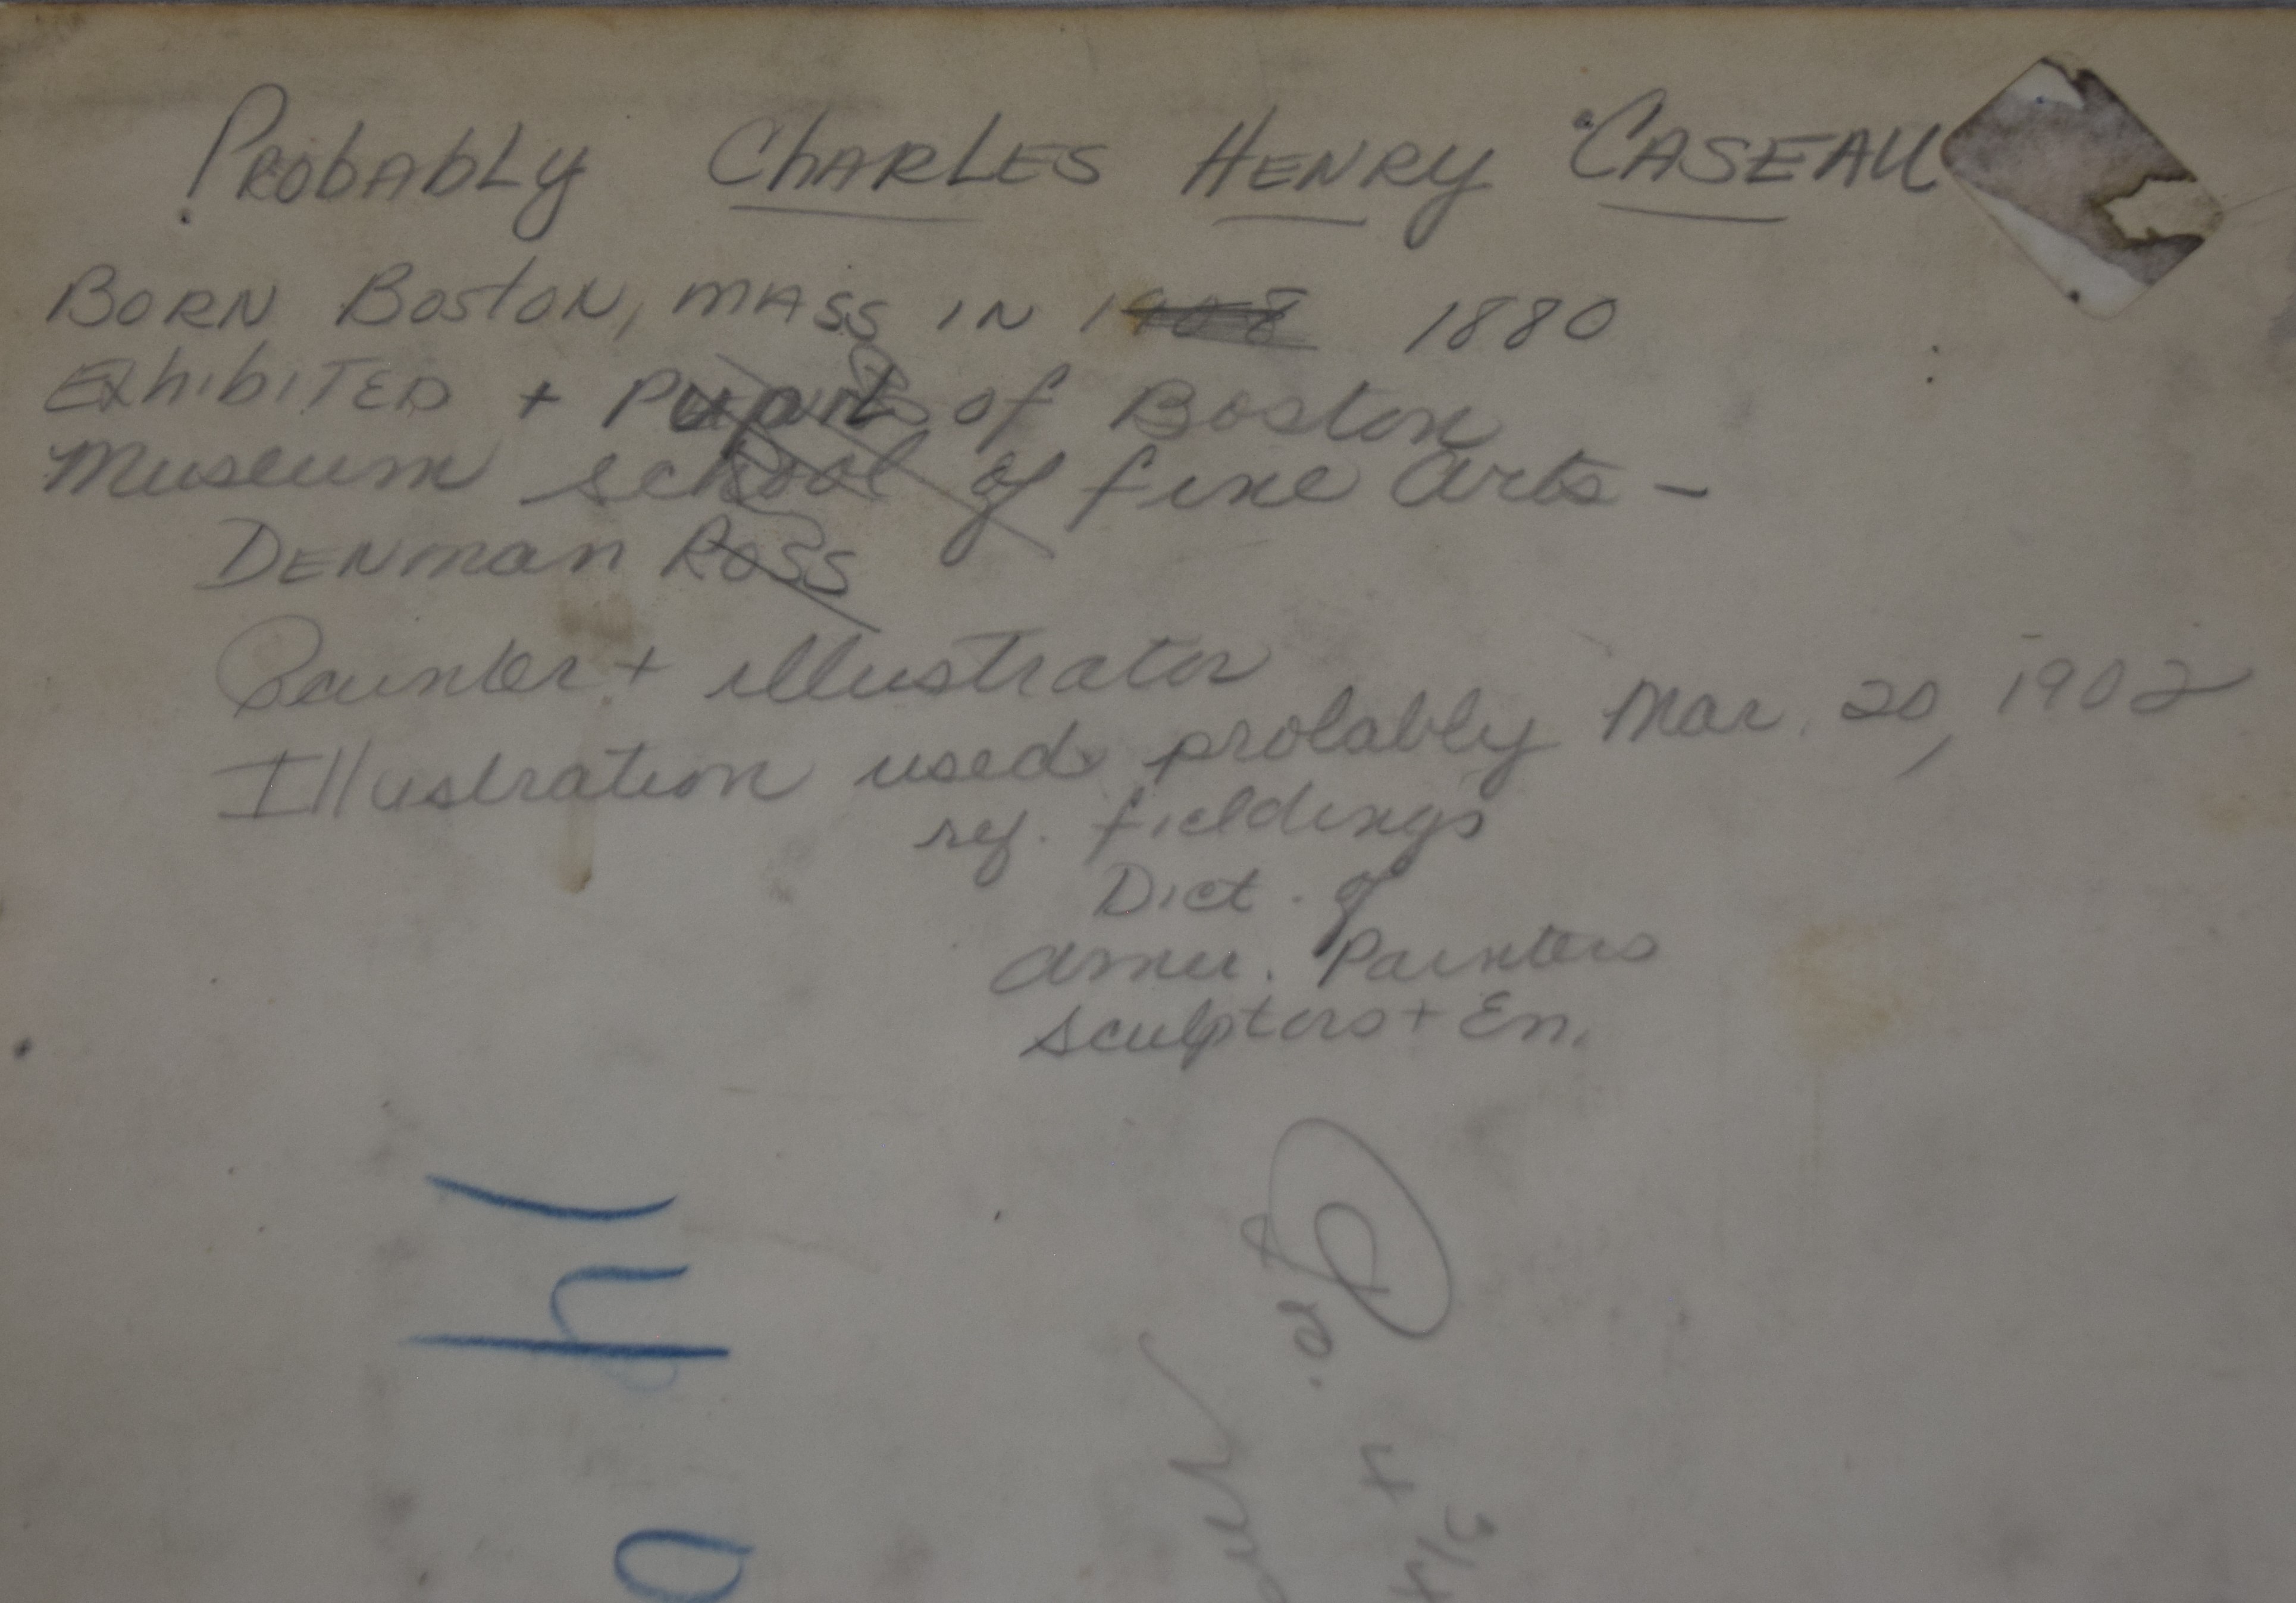 PRObAbLy ChARLES HENRY CASEAU
BORN BOStON, MASS IN 1908 1880
ExhibiTED + Pupil of Boston
Museum school of fine arts -
DENman Ross
Painter + illustrator
Illustration used probably Mar. 20, 1902
ref. fieldings
Dict. of
Amer. Painters
sculptors + En.